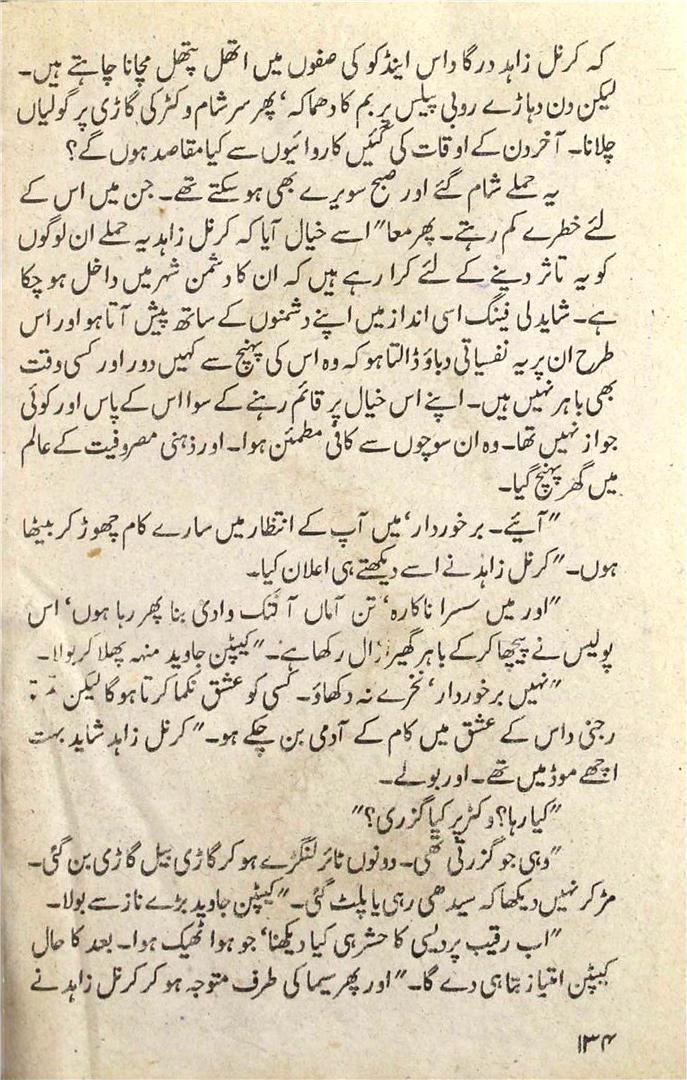 کہ کرنل زاہد درگا داس اینڈ کو کی صفوں میں اتھل پتھل مچانا چاہتے ہیں۔
لیکن دن دہاڑے روبی پیلس پر بم کا دھماکہ، پھر سر شام وکٹر کی گاڑی پر گولیاں
چلانا۔ آخر دن کے اوقات کی گئیں کاروائیوں سے کیا مقاصد ہوں گے؟
یہ حملے شام گئے اور صبح سویرے بھی ہو سکتے تھے۔ جن میں اس کے
لئے خطرے کم رہتے۔ پھر معا" اسے خیال آیا کہ کرنل زاہد یہ حملے ان لوگوں
کو یہ تاثر دینے کے لئے کرا رہے ہیں کہ ان کا دشمن شہر میں داخل ہو چکا
ہے۔ شاید لی فینگ اسی انداز میں اپنے دشمنوں کے ساتھ پیش آتا ہو اور اس
طرح ان پر یہ نفسیاتی دباؤ ڈالتا ہو کہ وہ اس کی پہنچ سے کہیں دور اور کسی وقت
بھی باہر نہیں ہیں۔ اپنے اس خیال پر قائم رہنے کے سوا اس کے پاس اور کوئی
جواز نہیں تھا۔ وہ ان سوچوں سے کافی مطمئن ہوا۔ اور ذہنی مصروفیت کے عالم
میں گھر پہنچ گیا۔
"آیئے۔ برخوردار، میں آپ کے انتظار میں سارے کام چھوڑ کر بیٹھا
ہوں۔" کرنل زاہد نے اسے دیکھتے ہی اعلان کیا۔
"اور میں سسرا ناکارہ، تن آماں آتنک وادی بنا پھر رہا ہوں، اس
پولیس نے پیچھا کر کے باہر گھیر ڈال رکھا ہے۔" کیپٹن جاوید منہہ پھلا کر بولا۔
"نہیں برخوردار، نخرے نہ دکھاؤ۔ کسی کو عشق نکما کرتا ہو گا لیکن
رجنی داس کے عشق میں کام کے آدمی بن چکے ہو۔" کرنل زاہد شاید بہت
اچھے موڈ میں تھے۔ اور بولے۔
"کیا رہا؟ وکٹر پر کیا گزری؟"
"وہی جو گزرنی تھی۔ دونوں ٹائر لنگڑے ہو کر گاڑی بیل گاڑی بن گئی۔
مڑ کر نہیں دیکھا کہ سیدھی رہی یا پلٹ گئی۔" کیپٹن جاوید بڑے ناز سے بولا۔
"اب رقیب پردیسی کا حشر ہی کیا دیکھنا، جو ہوا ٹھیک ہوا۔ بعد کا حال
کیپٹن امتیاز بتا ہی دے گا۔" اور پھر سیما کی طرف متوجہ ہو کر کرنل زاہد نے
۱۳۴